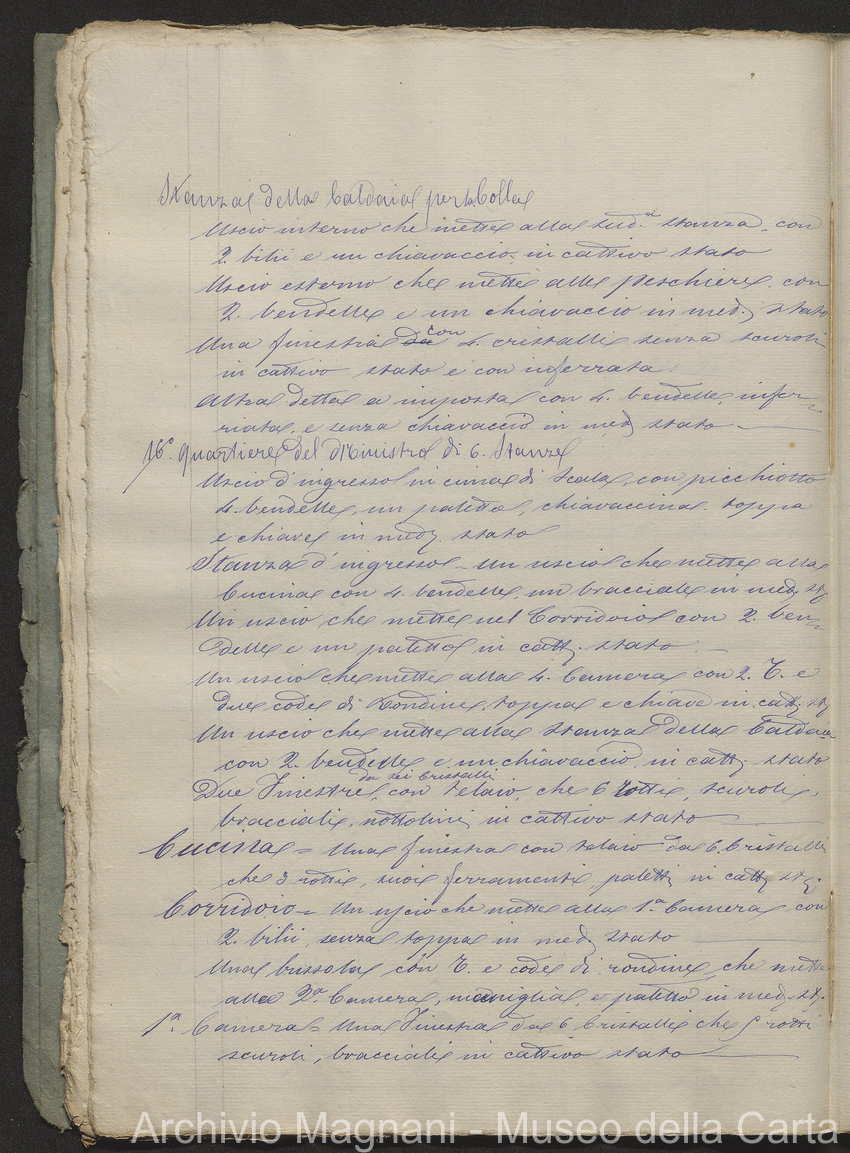 Stanza della Caldaia per la Colla
Uscio interno che mette alla sud.a stanza, con
2. bilii e un chiavaccio, in cattivo stato
Uscio esterno che mette alle peschiere, con
2. bendelle e un chiavaccio in med. stato
Una finestra con 4. cristalli senza scuroli
in cattivo stato e con inferrata
Altra detta a imposta con 4. bendelle, infer-
riata, e senza chiavaccio in med. stato
16° Quartiere del Ministro di 6. Stanze
Uscio d'ingresso in cima di Scala, con picchiotto
4. bendelle, un paletto, chiavaccina, toppa
e chiave in med. stato
Stanza d'ingresso - Un uscio che mette alla
Cucina con 4. bendelle, un bracciale in med. st.
Un uscio che mette nel Corridoio con 2. ben-
delle e un paletto in catt. stato
Un uscio che mette alla 4. Camera con 2. T. e
due code di Rondine, toppa e chiave in catt. st.
Un uscio che mette alla Stanza della Caldaia
con 2. bendelle e un chiavaccio, in catt. stato
Due Finestre, da sei Cristalli con telaio, che 6 rotti, scuroli,
bracciali, nottolini in cattivo stato
Cucina = Una finestra con telaio da 6. Cristalli
che 3 rotti, suoi ferramenti, paletti in catt. st.
Corridoio = Un uscio che mette alla 1.a Camera con
2. bilii, senza toppa in med. stato
Una bussola con T. e code di rondine, che mette
alla 2.a Camera, maniglia, e paletto in med. st.
1.a Camera = Una Finestra da 6 Cristalli che rotti
scuroli, bracciali in cattivo stato
Archivio Magnani - Museo della Carta